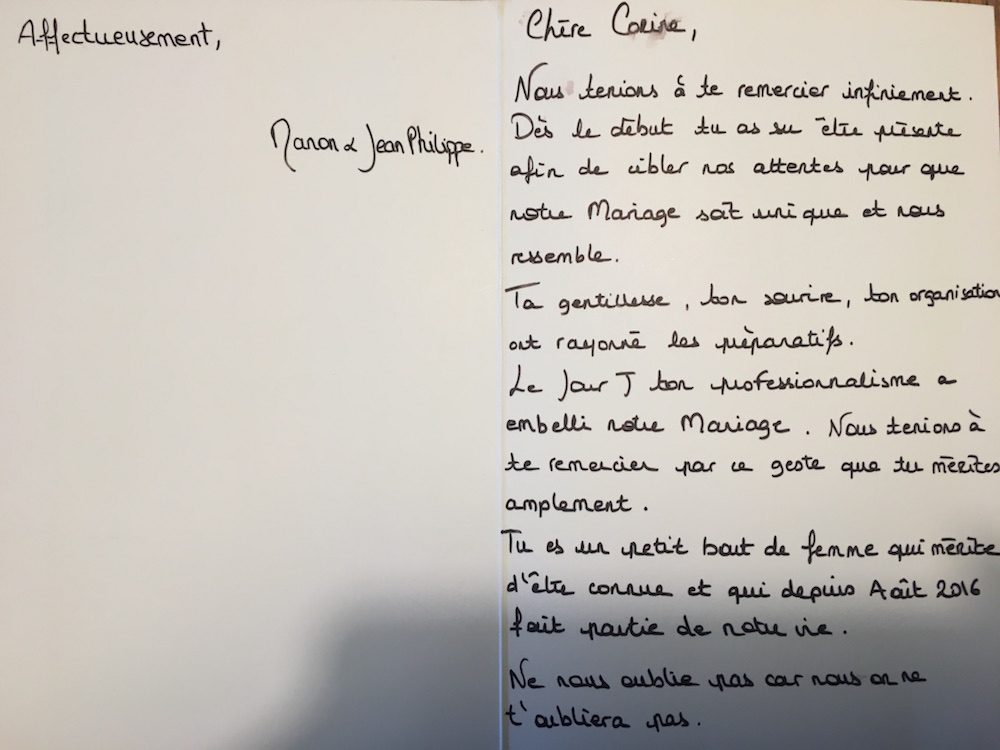 Chère Corine,
Nous tenions à te remercier infiniement.
Dès le début tu as su être présente
afin de cibler nos attentes pour que
notre Mariage soit unique et nous
ressemble.
Ta gentillesse, ton sourire, ton organisation
ont rayonné les préparatifs.
Le Jour J ton professionnalisme a
embelli notre Mariage. Nous tenions à
te remercier par ce geste que tu mérites
amplement.
Tu es un petit bout de femme qui mérite
d'être connue et qui depuis Août 2016
fait partie de notre vie.
Ne nous oublie pas car nous on ne
t'oubliera pas.
Affectueusement,
Manon & Jean Philippe.